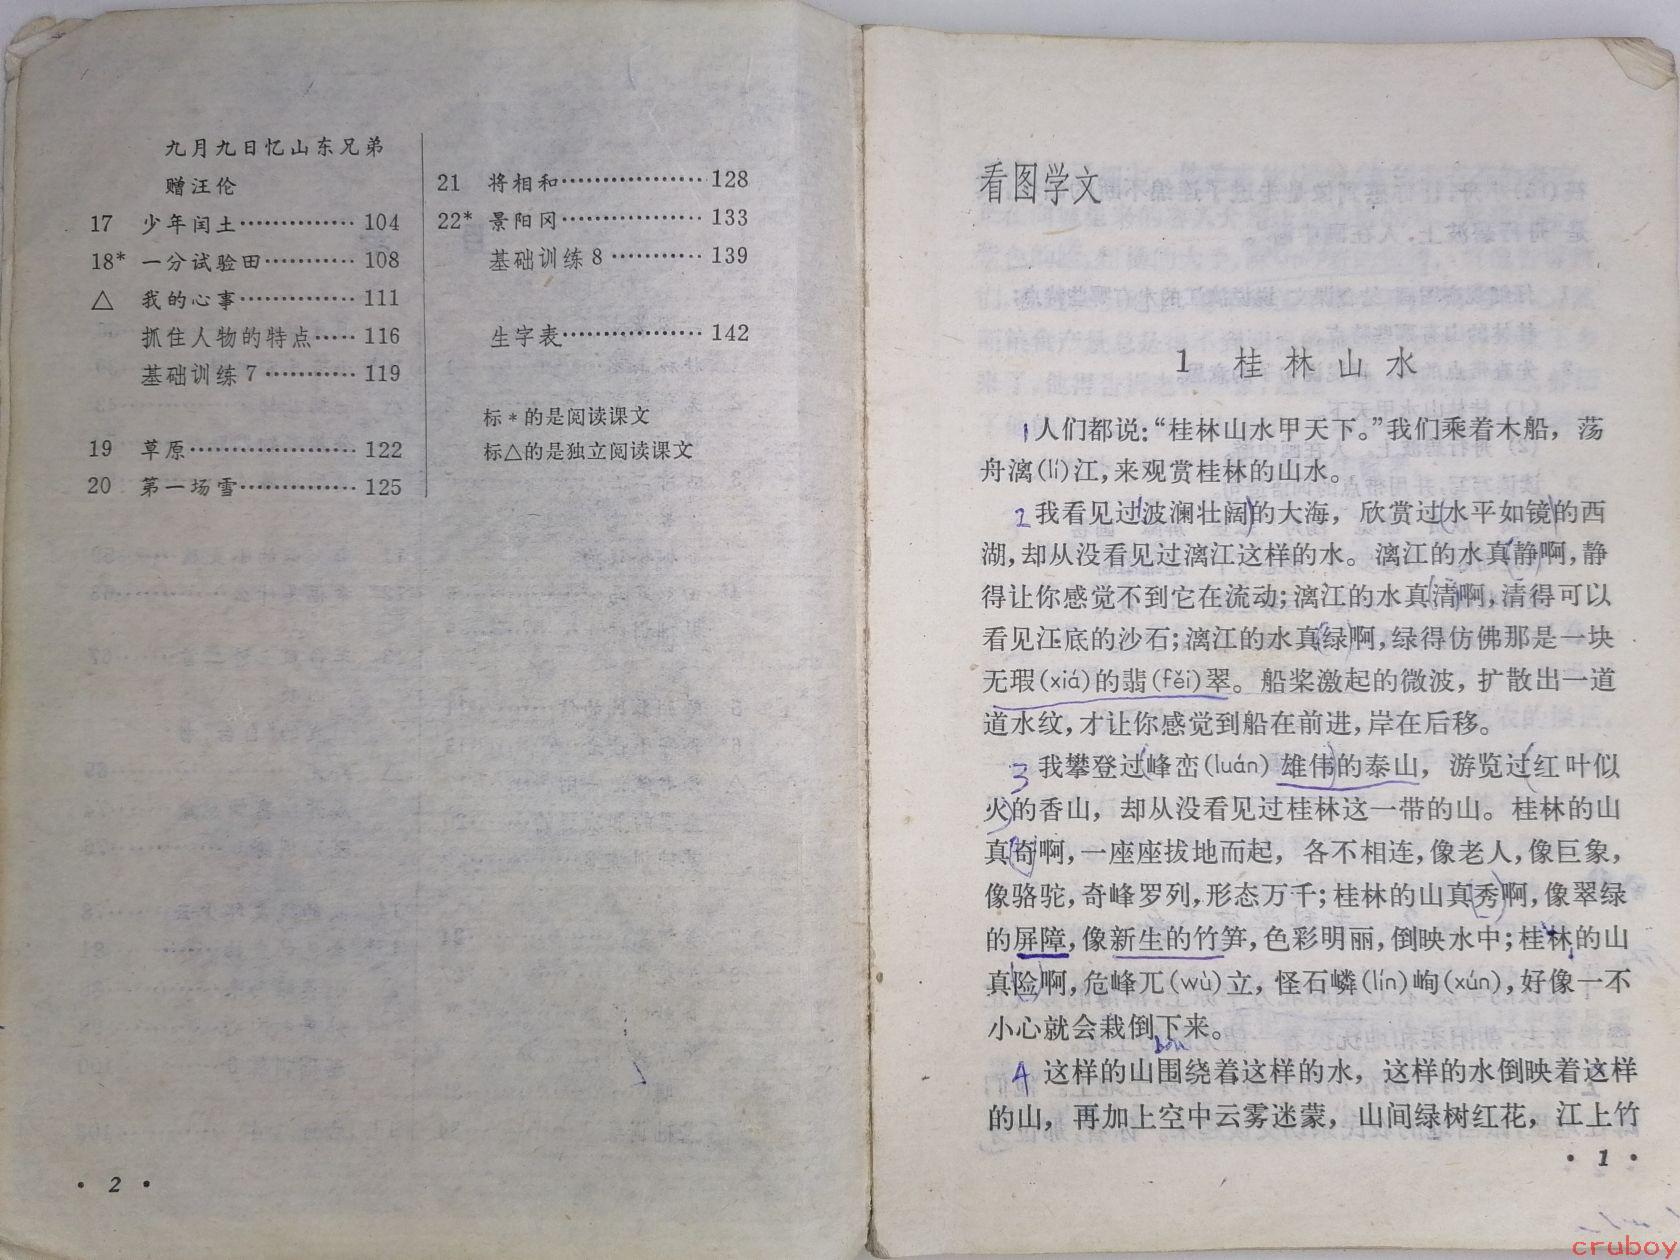 九月九日忆山东兄弟
赠汪伦
17 少年闰土…………… 104
18* 一分试验田………… 108
△ 我的心事…………… 111
抓住人物的特点…… 116
基础训练7………… 119
19 草原………………… 122
20 第一场雪…………… 125
21 将相和……………… 128
22* 景阳冈……………… 133
基础训练8………… 139
生字表……………… 142
标*的是阅读课文
标△的是独立阅读课文
· 2 ·
看图学文
1 桂林山水
1 人们都说：“桂林山水甲天下。”我们乘着木船，荡
舟漓(lí)江，来观赏桂林的山水。
2 我看见过(波澜壮阔)的大海，欣赏过(水平如镜)的西
湖，却从没看见过漓江这样的水。漓江的水真静啊，静
得让你感觉不到它在流动；漓江的水真(清)啊，清得可以
看见江底的沙石；漓江的水真(绿)啊，绿得仿佛那是一块
无瑕(xiá)的翡(fěi)翠。船桨激起的微波，扩散出一道
道水纹，才让你感觉到船在前进，岸在后移。
3 我攀登过(峰峦(luán)雄伟)的泰山，游览过(红叶似
火)的香山，却从没看见过桂林这一带的山。桂林的山
真(奇)啊，一座座拔地而起，各不相连，像老人，像巨象，
像骆驼，奇峰罗列，形态万千；桂林的山真(秀)啊，像翠绿
的屏障，像新生的竹笋，色彩明丽，倒映水中；桂林的山
真(险)啊，危峰兀(wù)立，怪石嶙(lín)峋(xún)，好像一不
小心就会栽倒下来。
4 这样的山围绕着这样的水，这样的水倒映着这样
的山，再加上空中云雾迷蒙，山间绿树红花，江上竹
· 1 ·
cruboy